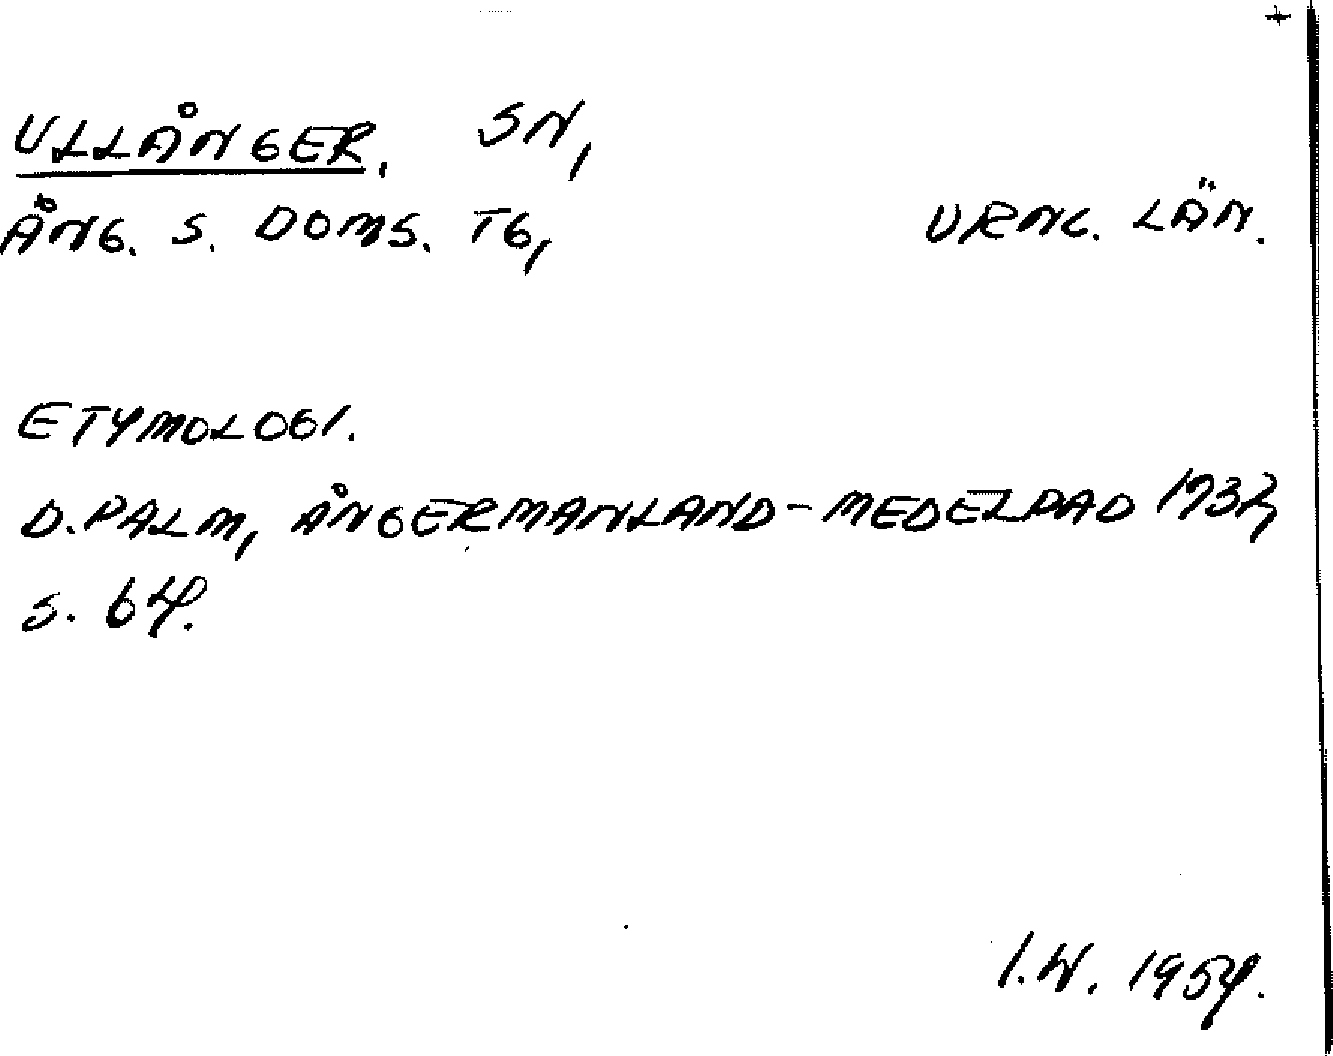 +
ULLÅNGER. SN,
ÅNG. S. DOMS. TG, VRNL. LÄN.
ETYMOLOGI.
D. PALM, ÅNGERMANLAND-MEDELPAD 1932,
S. 64.
I.W. 1954.